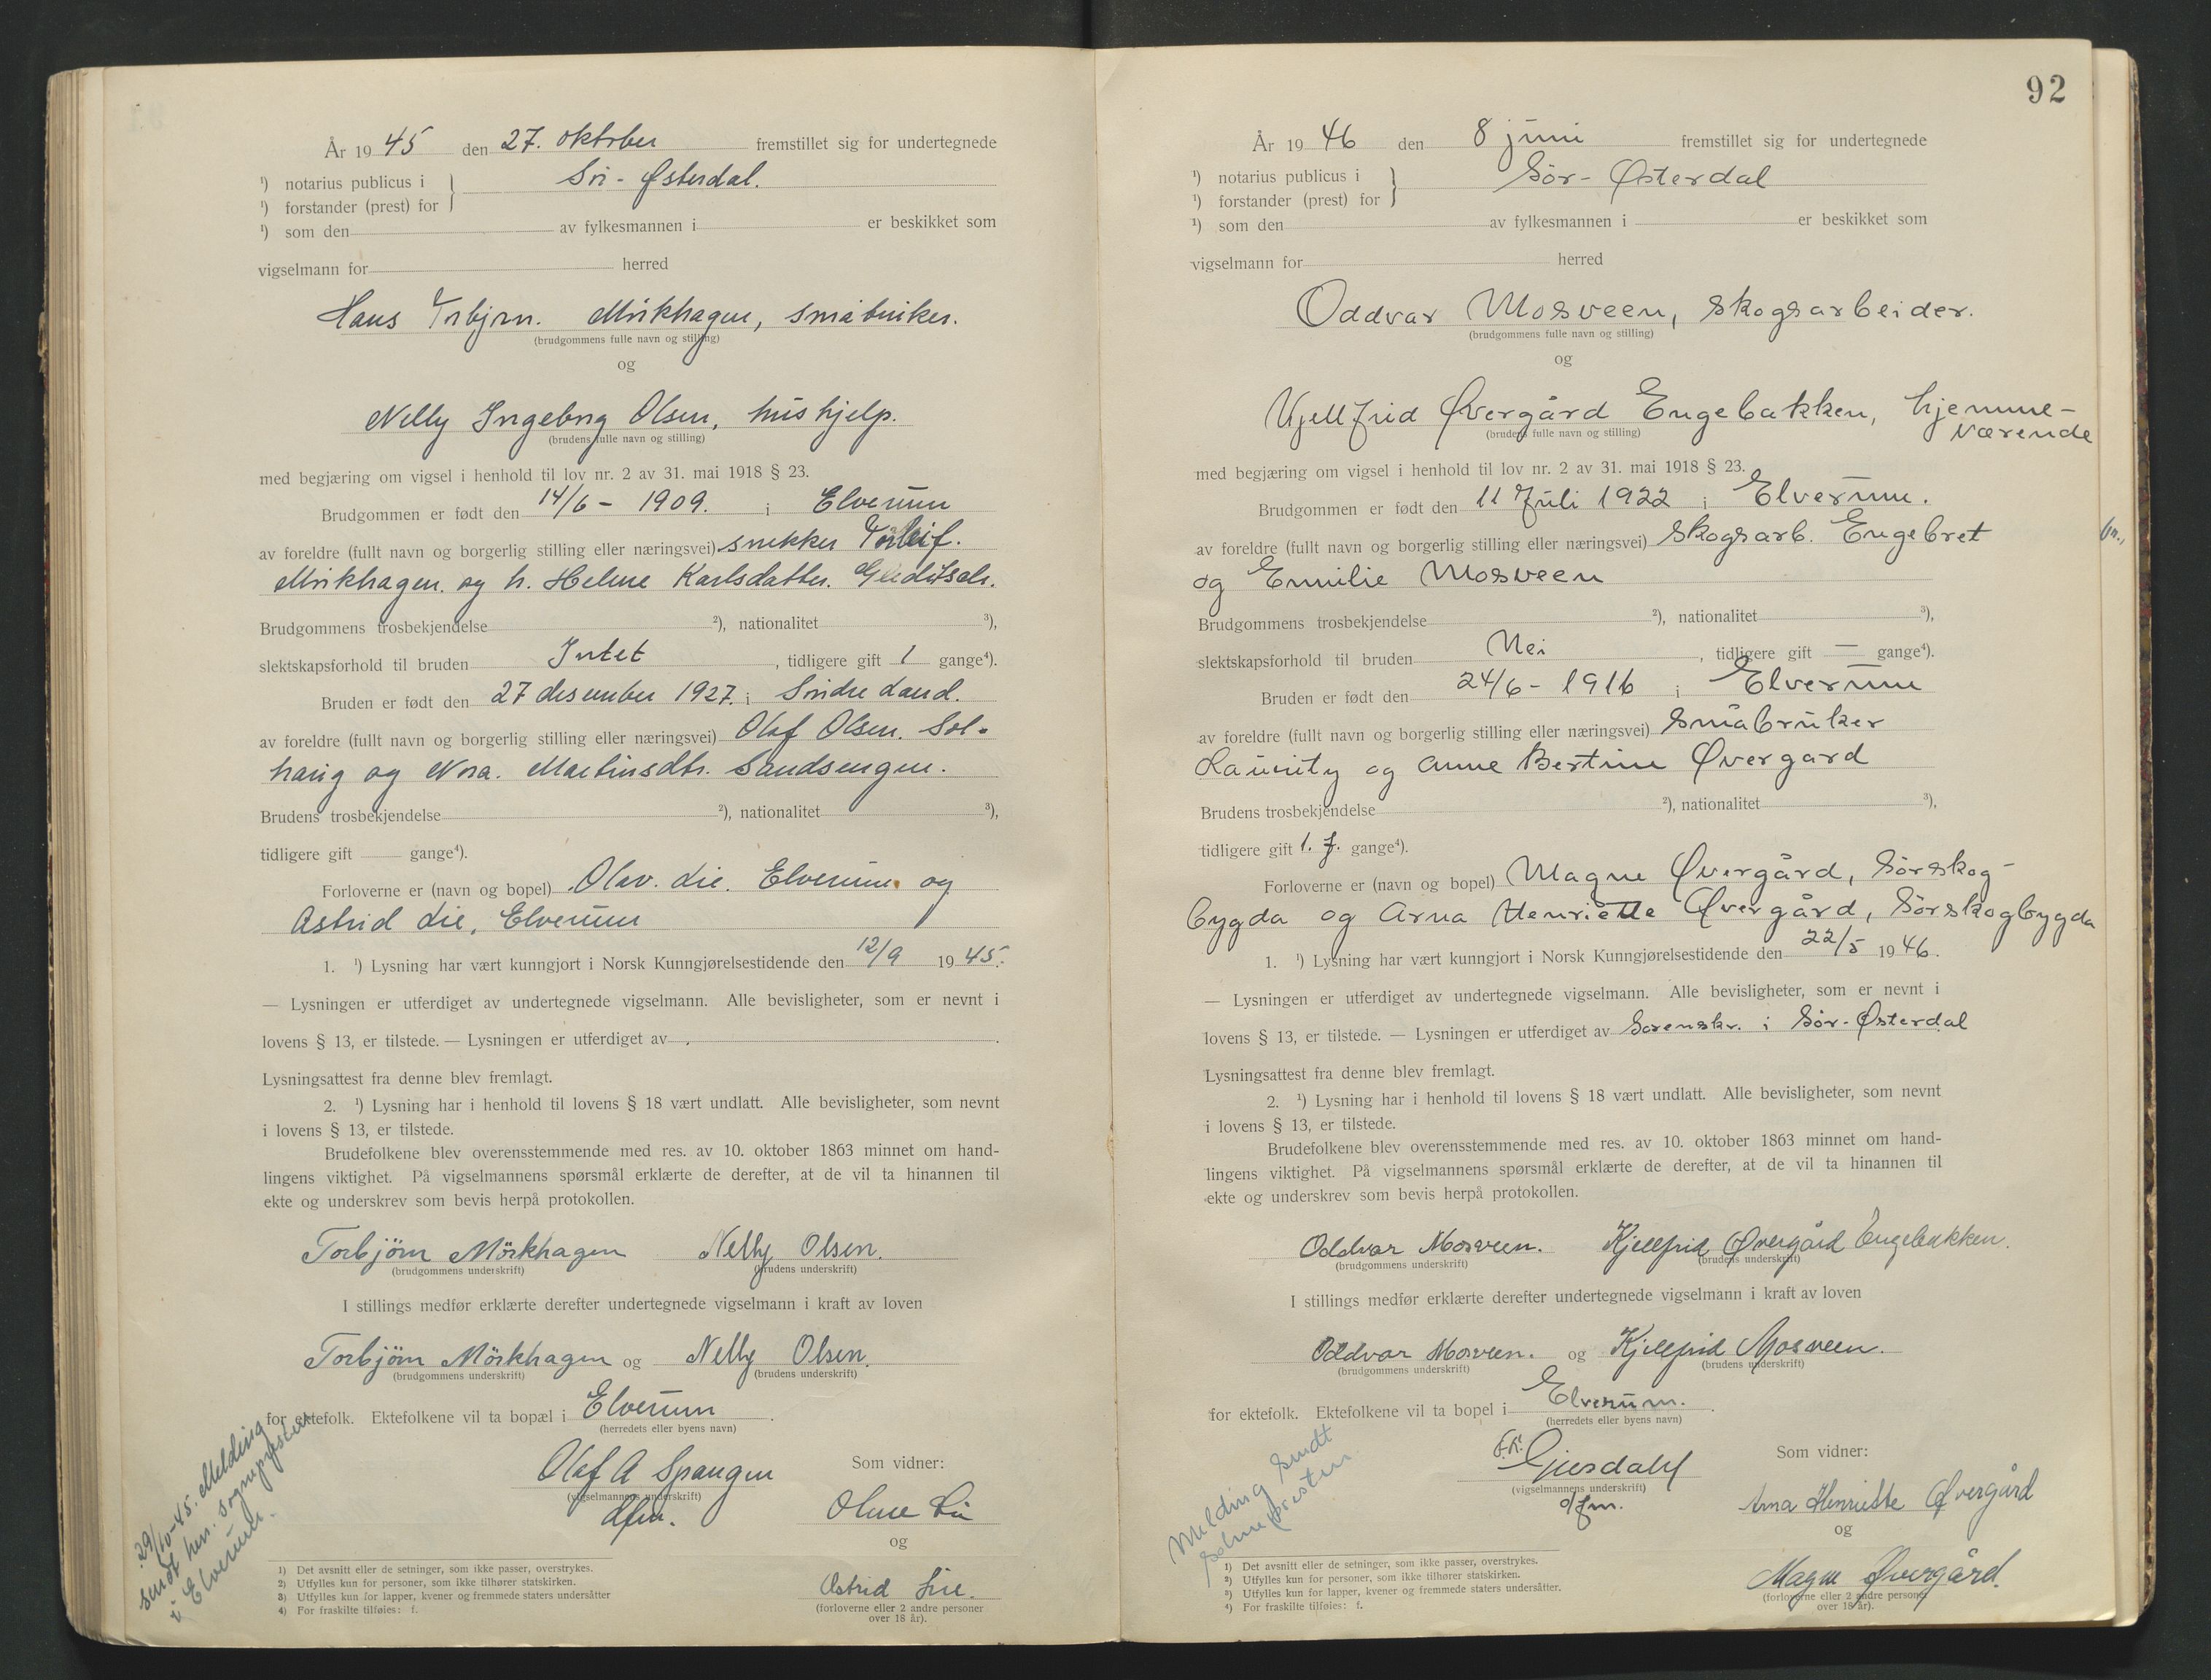 År 19 45 den 27. oktober fremstillet sig for undertegnede
¹) notarius publicus i } Sør-Østerdal.
¹) forstander (prest) for
¹) som den av fylkesmannen i er beskikket som
vigselmann for herred
Hans Torbjørn. Mørkhagen, småbruker.
(brudgommens fulle navn og stilling)
og
Nelly Ingeborg Olsen, hushjelp.
(brudens fulle navn og stilling)
med begjæring om vigsel i henhold til lov nr. 2 av 31. mai 1918 § 23.
Brudgommen er født den 14/6 - 1909. i Elverum
av foreldre (fullt navn og borgerlig stilling eller næringsvei) snekker Torleif.
Mørkhagen. og h. Helene Karlsdatter. Gleditsch.
Brudgommens trosbekjendelse ²), nationalitet ³),
slektskapsforhold til bruden Intet, tidligere gift 1 gange⁴).
Bruden er født den 27 desember 1927. i Søndre Land.
av foreldre (fullt navn og borgerlig stilling eller næringsvei) Olaf Olsen. Sol-
haug og Nora. Martinsdtr. Sandsengen.
Brudens trosbekjendelse ²), nationalitet ³),
tidligere gift gange⁴).
Forloverne er (navn og bopel) Olav. Lie. Elverum og
Astrid Lie, Elverum
1. ¹) Lysning har vært kunngjort i Norsk Kunngjørelsestidende den 12/9 19 45.
— Lysningen er utferdiget av undertegnede vigselmann. Alle bevisligheter, som er nevnt i
lovens § 13, er tilstede. — Lysningen er utferdiget av
Lysningsattest fra denne blev fremlagt.
2. ¹) Lysning har i henhold til lovens § 18 vært undlatt. Alle bevisligheter, som nevnt
i lovens § 13, er tilstede.
Brudefolkene blev overensstemmende med res. av 10. oktober 1863 minnet om hand-
lingens viktighet. På vigselmannens spørsmål erklærte de derefter, at de vil ta hinannen til
ekte og underskrev som bevis herpå protokollen.
Torbjörn Mörkhagen Nelly Olsen.
(brudgommens underskrift) (brudens underskrift)
I stillings medfør erklærte derefter undertegnede vigselmann i kraft av loven
Torbjörn Mörkhagen og Nelly Olsen.
(brudgommens underskrift) (brudens underskrift)
for ektefolk. Ektefolkene vil ta bopæl i Elverum.
(herredets eller byens navn)
Olaf A Spangen
(vigselmannens underskrift)
dfm.
Som vidner:
Olav Lie
og
Astrid Lie.
(forloverne eller 2 andre personer
over 18 år).
29/10-45. Melding
sendt herr. sognepresten
i Elverum.
1) Det avsnitt eller de setninger, som ikke passer, overstrykes.
2) Utfylles kun for personer, som ikke tilhører statskirken.
3) Utfylles kun for lapper, kvener og fremmede staters undersåtter
4) For fraskilte tilføies: f.
92
År 19 46 den 8 juni fremstillet sig for undertegnede
¹) notarius publicus i } Sør-Østerdal
¹) forstander (prest) for
¹) som den av fylkesmannen i er beskikket som
vigselmann for herred
Oddvar Mosveen, skogsarbeider.
(brudgommens fulle navn og stilling)
og
Kjellfrid Øvergård Engebakken, hjemme-
værende
(brudens fulle navn og stilling)
med begjæring om vigsel i henhold til lov nr. 2 av 31. mai 1918 § 23.
Brudgommen er født den 11 Juli 1922 i Elverum.
av foreldre (fullt navn og borgerlig stilling eller næringsvei) skogsarb. Engebret
og Emilie Mosveen
Brudgommens trosbekjendelse ²), nationalitet ³),
slektskapsforhold til bruden Nei, tidligere gift — gange⁴).
Bruden er født den 24/6 - 1916 i Elverum
av foreldre (fullt navn og borgerlig stilling eller næringsvei) småbruker
Lauritz og Anne Bertine Øvergård
Brudens trosbekjendelse ²), nationalitet ³),
tidligere gift 1. f. gange⁴).
Forloverne er (navn og bopel) Magne Øvergård, Sørskog-
bygda og Arna Henriette Øvergård, Sørskogbygda
1. ¹) Lysning har vært kunngjort i Norsk Kunngjørelsestidende den 22/5 19 46.
— Lysningen er utferdiget av undertegnede vigselmann. Alle bevisligheter, som er nevnt i
lovens § 13, er tilstede. — Lysningen er utferdiget av Sorenskr. i Sør-Østerdal
Lysningsattest fra denne blev fremlagt.
2. ¹) Lysning har i henhold til lovens § 18 vært undlatt. Alle bevisligheter, som nevnt
i lovens § 13, er tilstede.
Brudefolkene blev overensstemmende med res. av 10. oktober 1863 minnet om hand-
lingens viktighet. På vigselmannens spørsmål erklærte de derefter, at de vil ta hinannen til
ekte og underskrev som bevis herpå protokollen.
Oddvar Mosveen. Kjellfrid Øvergård Engebakken.
(brudgommens underskrift) (brudens underskrift)
I stillings medfør erklærte derefter undertegnede vigselmann i kraft av loven
Oddvar Mosveen. og Kjellfrid Mosveen.
(brudgommens underskrift) (brudens underskrift)
for ektefolk. Ektefolkene vil ta bopel i Elverum.
(herredets eller byens navn)
Gjesdahl
(vigselmannens underskrift)
dfm.
Som vidner:
Arna Henriette Øvergård
og
Magne Øvergård.
(forloverne eller 2 andre personer
over 18 år).
Melding sendt
soknepresten
1) Det avsnitt eller de setninger, som ikke passer, overstrykes.
2) Utfylles kun for personer, som ikke tilhører statskirken.
3) Utfylles kun for lapper, kvener og fremmede staters undersåtter.
4) For fraskilte tilføies: f.